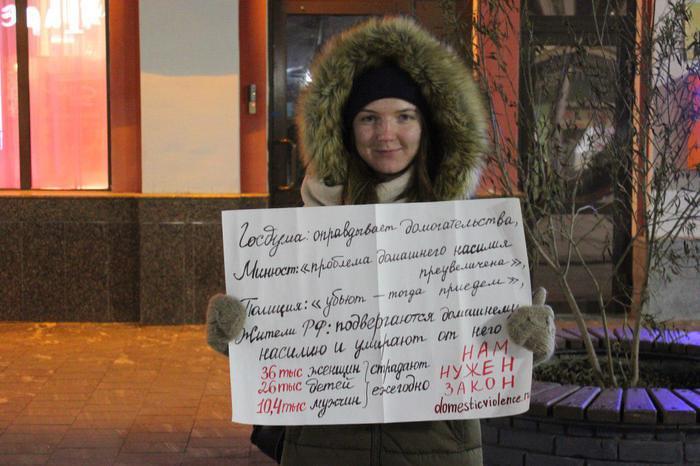 Госдума: оправдывает домогательства,
Минюст: «проблема домашнего насилия
преувеличена»,
Полиция: «убьют – тогда приедем»,
Жители РФ: подвергаются домашнему
насилию и умирают от него
36 тыс женщин } страдают
26 тыс детей } ежегодно
10,4 тыс мужчин
НАМ
НУЖЕН
ЗАКОН
domesticviolence.r